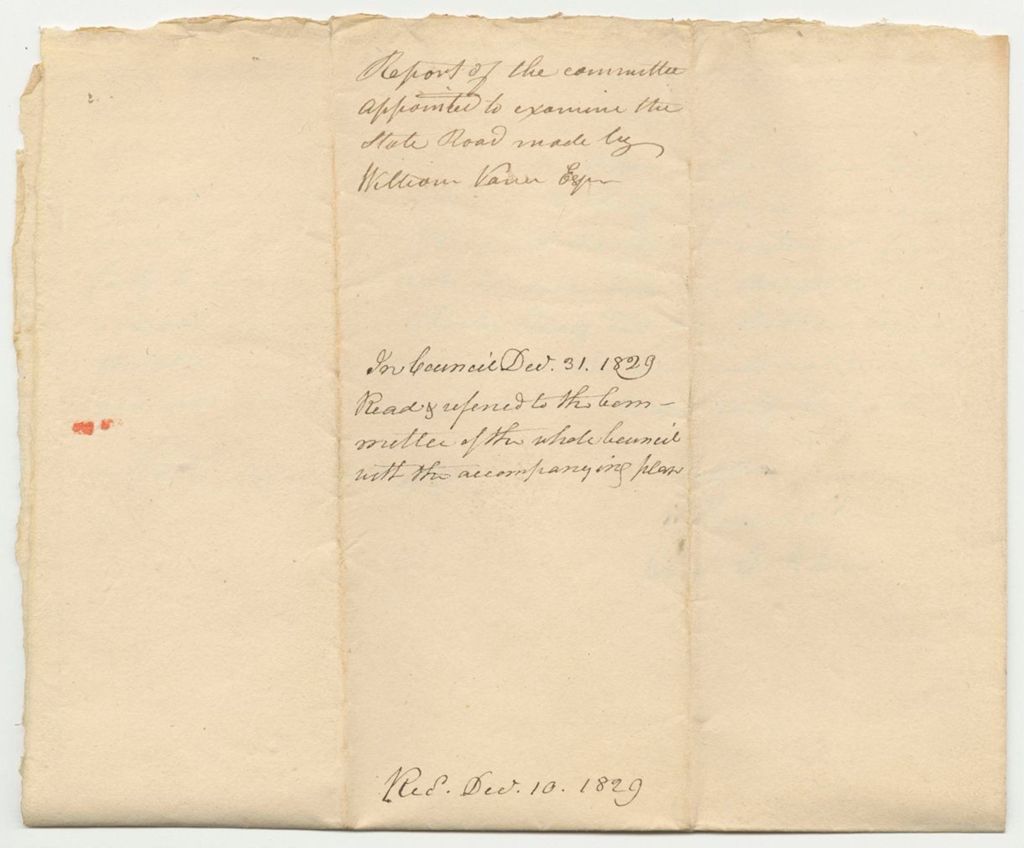 Report of the committee
appointed to examine the
State Road made by
William Vance Esqr
In Council Dec. 31. 1829
Read & referred to the Com-
mittee of the whole Council
with the accompanying plan
Recd. Dec. 10. 1829